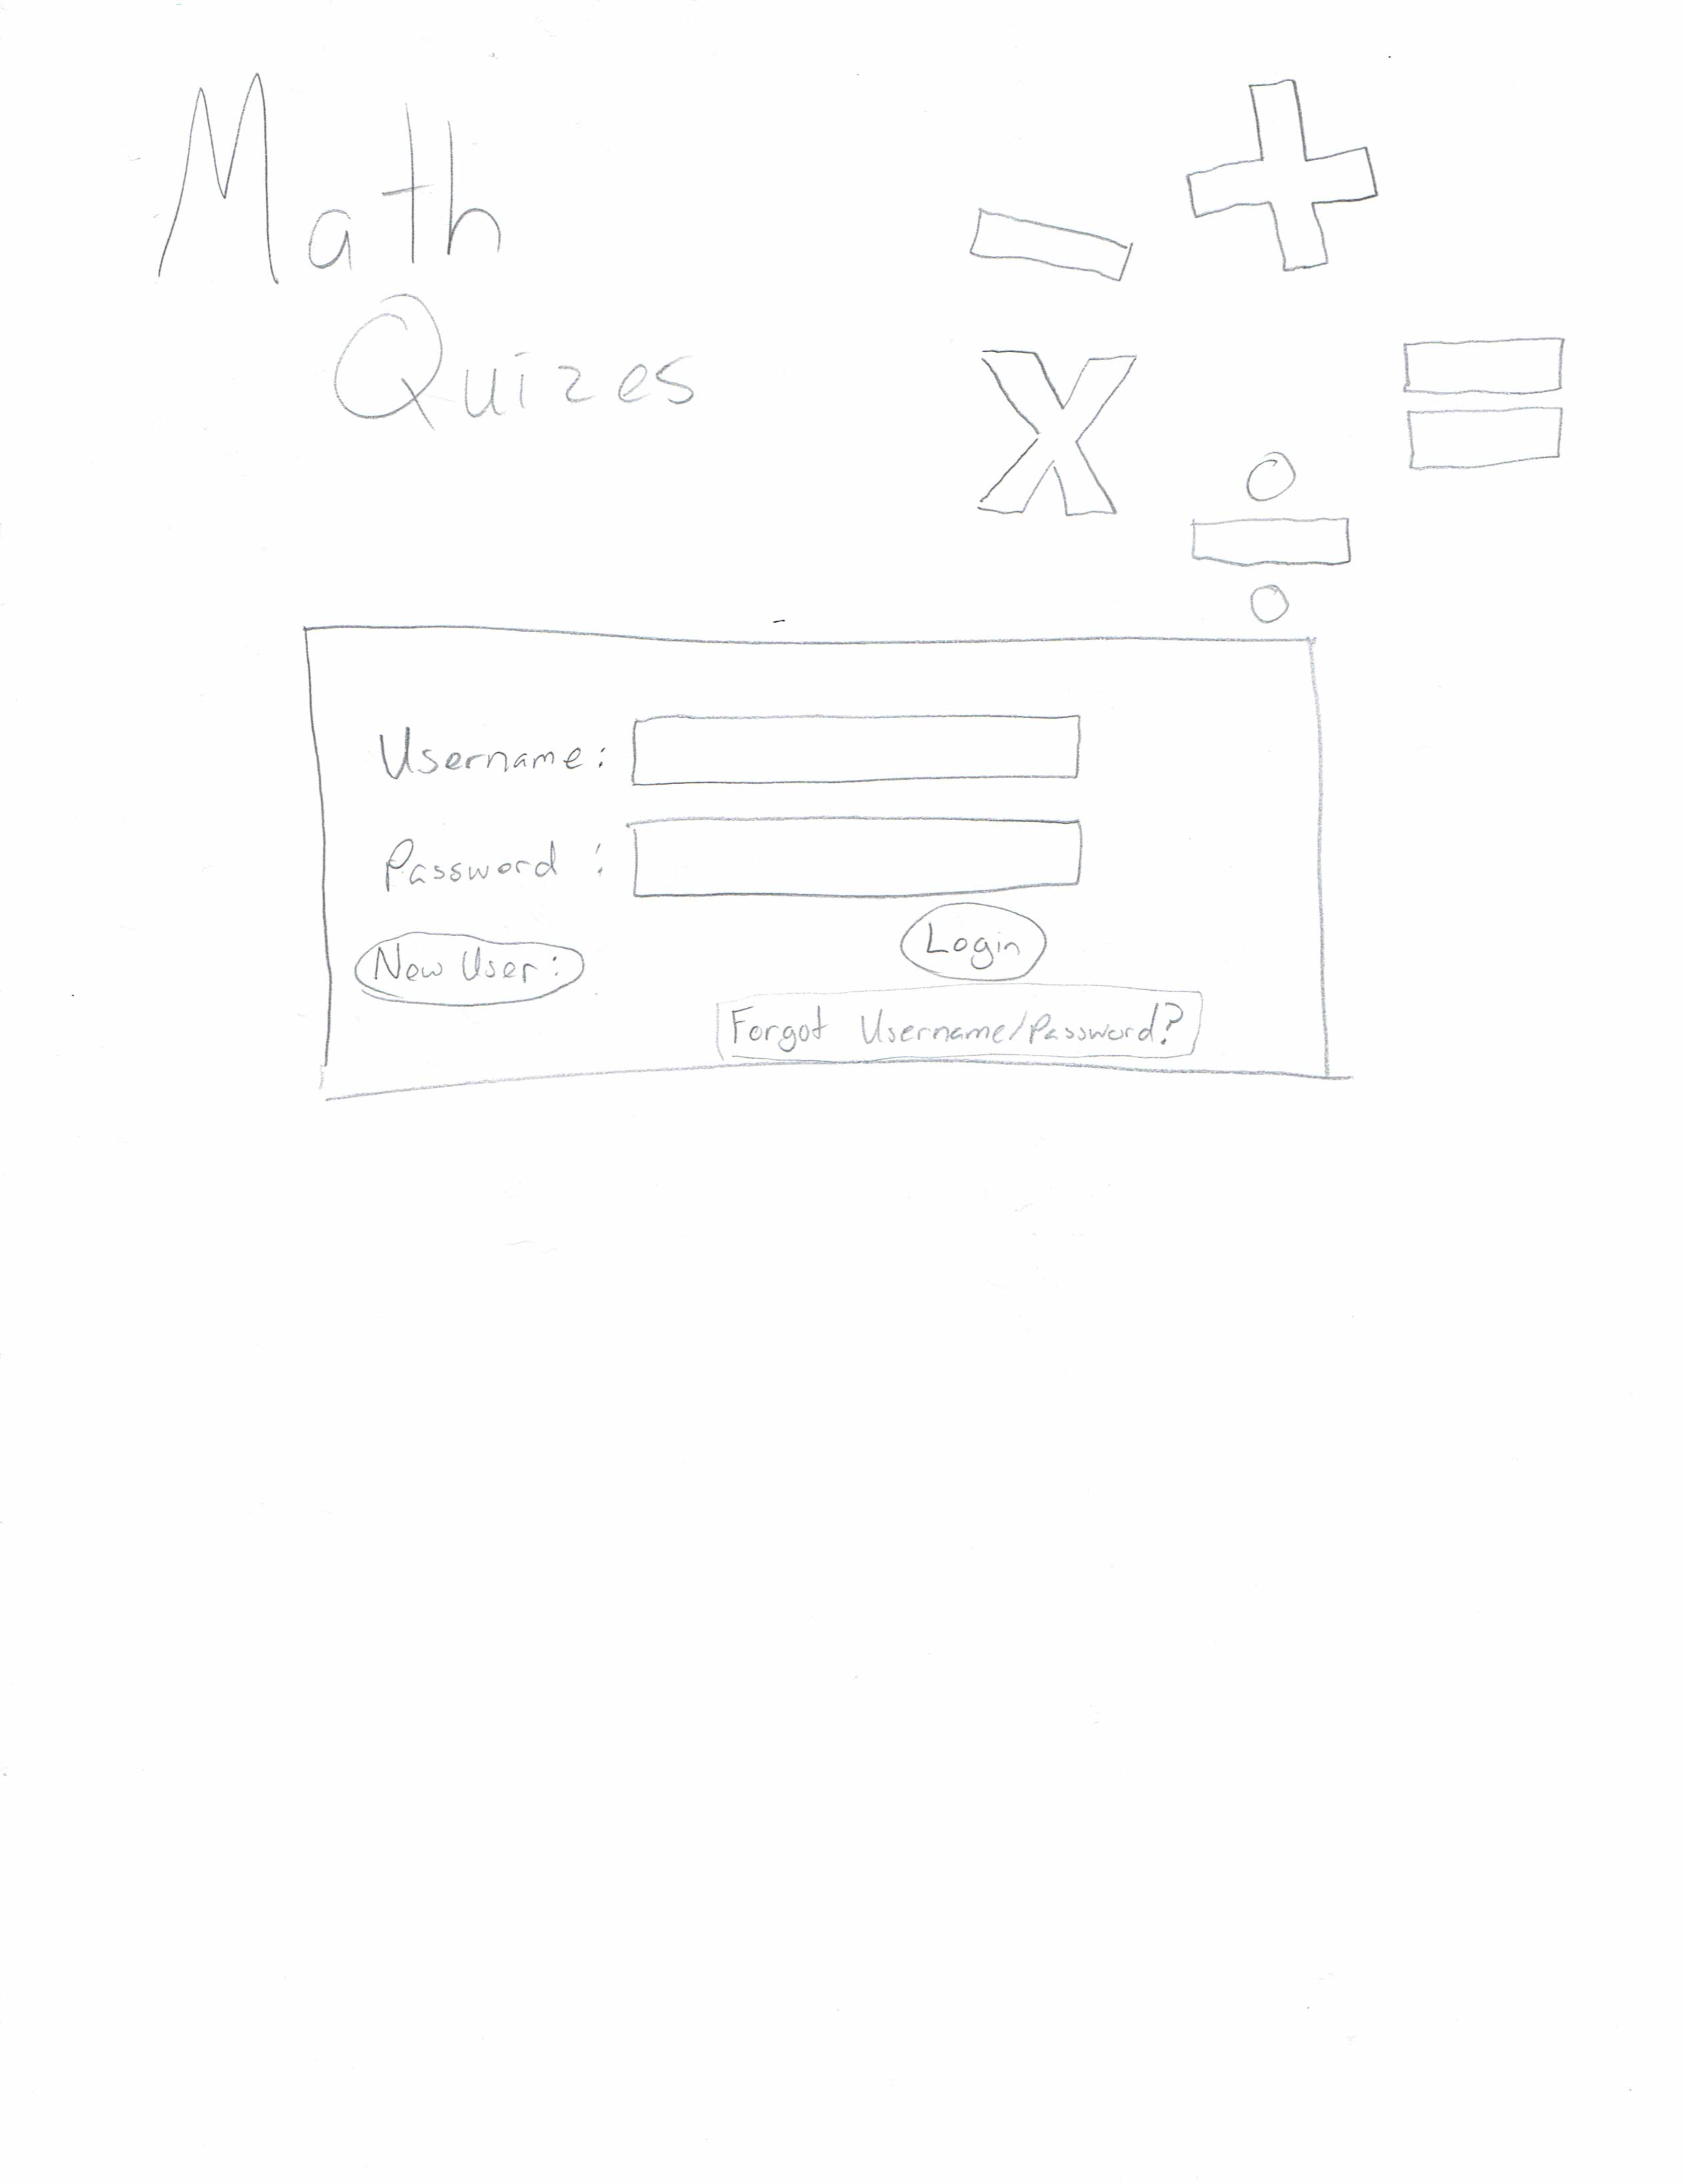 Math
Quizes
- +
X =
÷
Username:
Password :
New User:
Login
Forgot Username/Password?